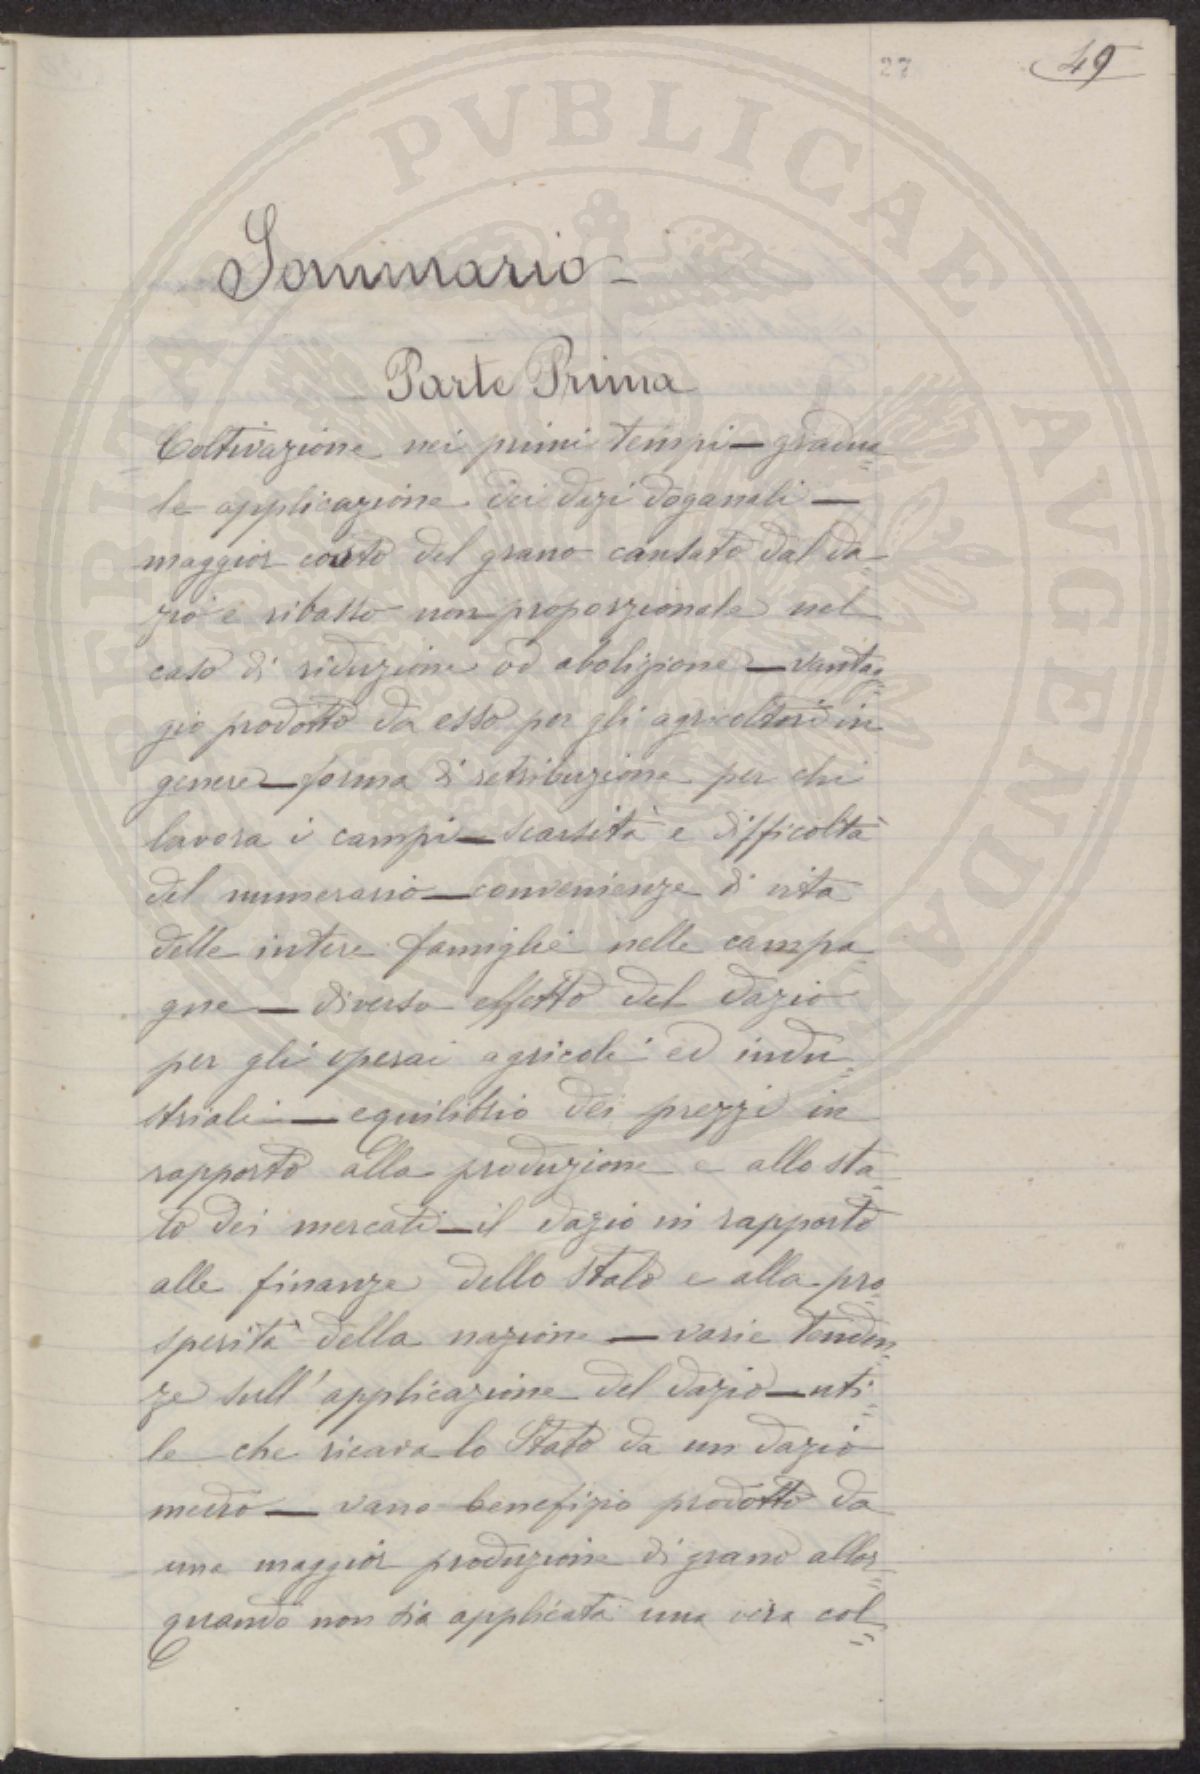 27
49
Sommario -
Parte Prima
Coltivazione nei primi tempi — gradua=
le applicazione dei dazi doganali —
maggior costo del grano causato dal da=
zio e ribasso non proporzionale nel
caso di riduzione od abolizione — vantag=
gio prodotto da esso per gli agricoltori in
genere — forma di retribuzione per chi
lavora i campi — scarsità e difficoltà
del numerario — convenienze di vita
delle intere famiglie nelle campa=
gne — diverso effetto del dazio
per gli operai agricoli ed indu=
striali — equilibrio dei prezzi in
rapporto alla produzione e allo sta=
to dei mercati — il dazio in rapporto
alle finanze dello Stato e alla pro=
sperità della nazione — varie tenden=
ze sull'applicazione del dazio — uti=
le che ricava lo Stato da un dazio
medio — vano benefizio prodotto da
una maggior produzione di grano allor=
quando non sia applicata una vera col=